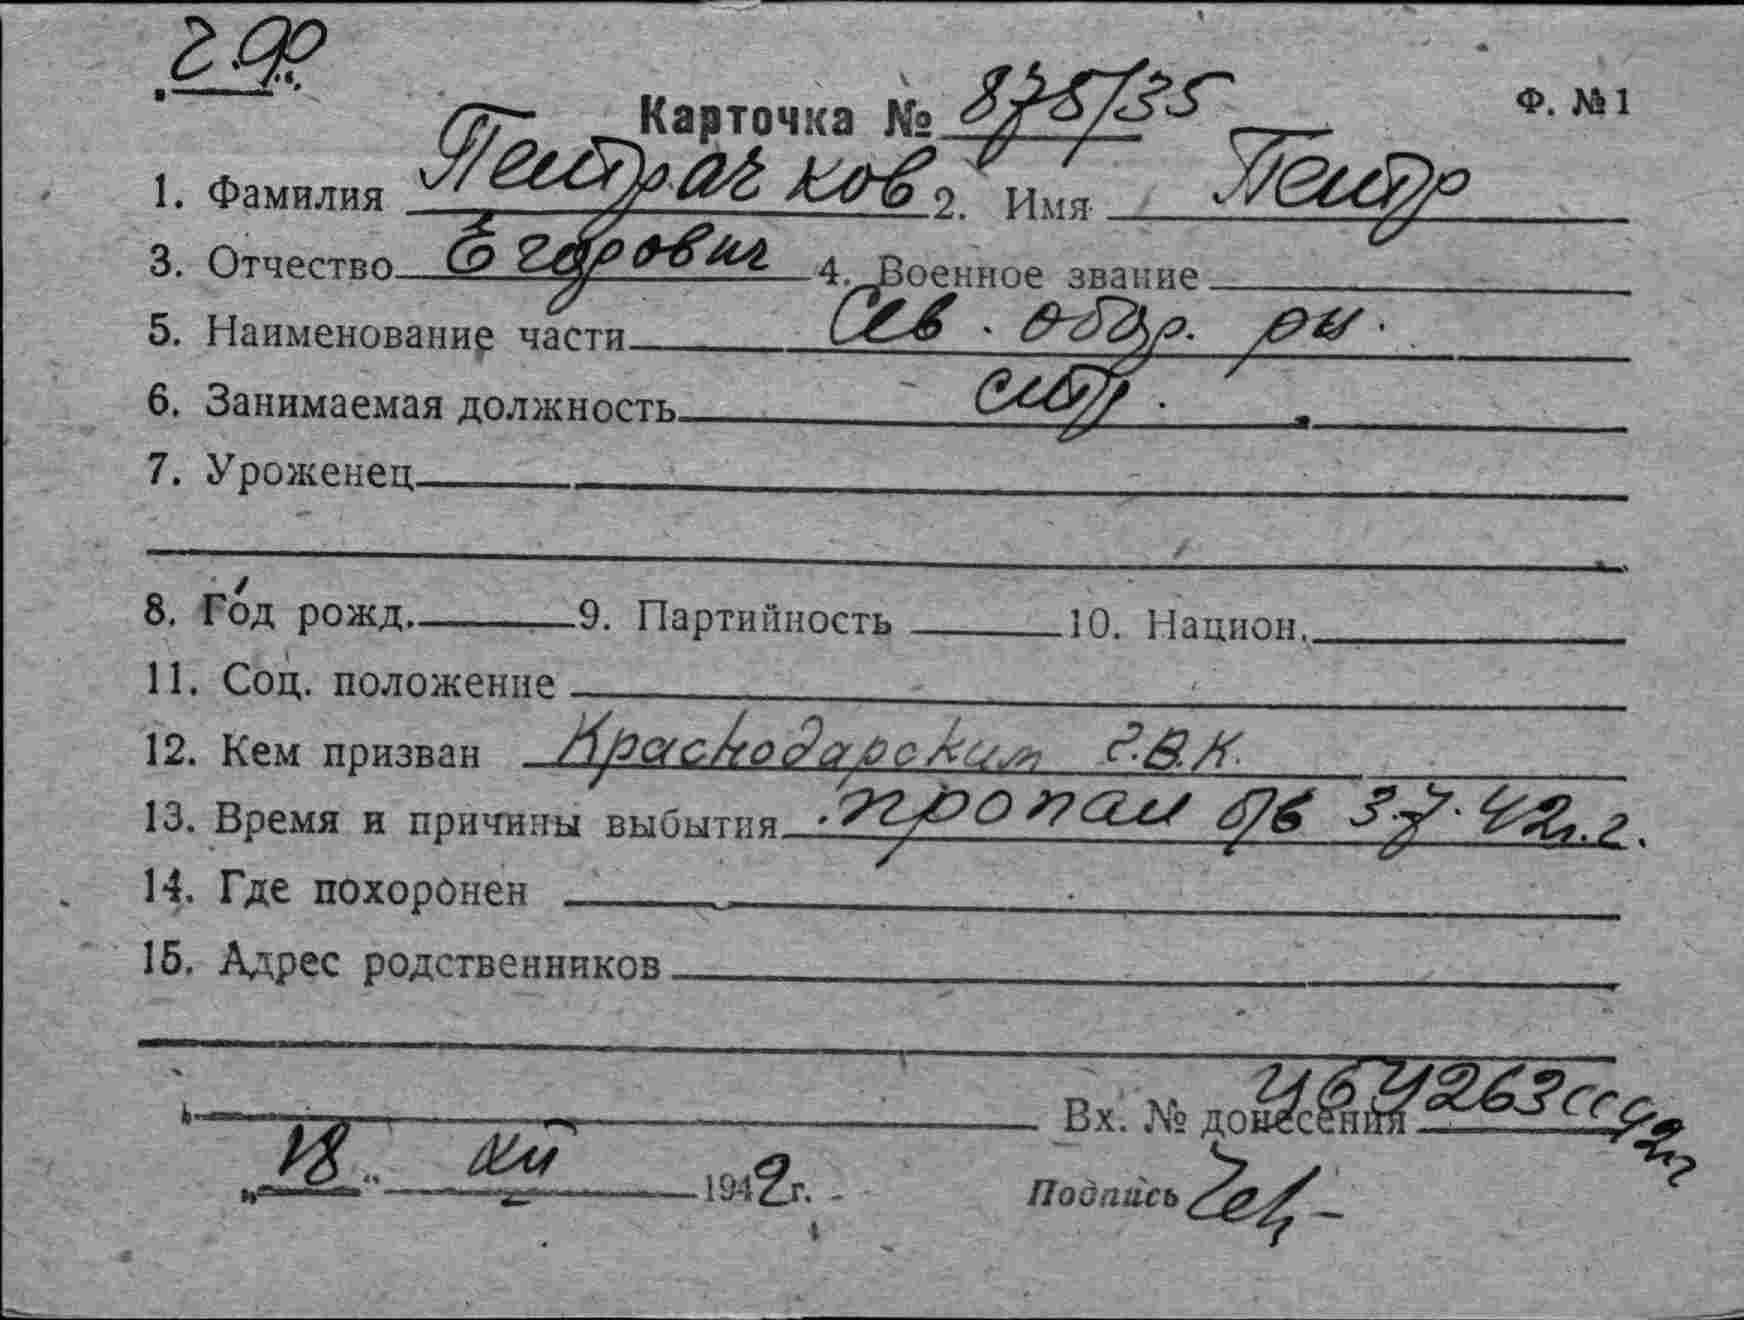 Карточка № 878/35 Ф. № 1
1. Фамилия Петрачков 2. Имя Петр
3. Отчество Егорович 4. Военное звание
5. Наименование части Сев. обор. рн.
6. Занимаемая должность стр.
7. Уроженец
8. Год рожд. 9. Партийность 10. Национ.
11. Соц. положение
12. Кем призван Краснодарским Г.В.К.
13. Время и причины выбытия пропал б/в 3.7.42 г.
14. Где похоронен
15. Адрес родственников
Вх. № донесения
"18" XII 1942 г. Подпись